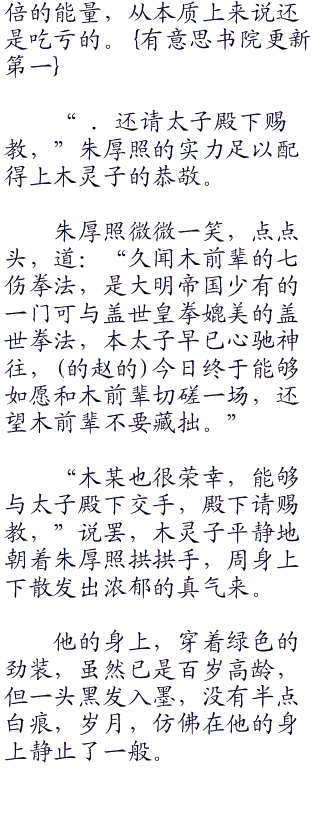 倍的能量，从本质上来说还
是吃亏的。{有意思书院更新
第一}
“ ．还请太子殿下赐
教，”朱厚照的实力足以配
得上木灵子的恭敬。
朱厚照微微一笑，点点
头，道：“久闻木前辈的七
伤拳法，是大明帝国少有的
一门可与盖世皇拳媲美的盖
世拳法，本太子早已心驰神
往，(的赵的)今日终于能够
如愿和木前辈切磋一场，还
望木前辈不要藏拙。”
“木某也很荣幸，能够
与太子殿下交手，殿下请赐
教，”说罢，木灵子平静地
朝着朱厚照拱拱手，周身上
下散发出浓郁的真气来。
他的身上，穿着绿色的
劲装，虽然已是百岁高龄，
但一头黑发入墨，没有半点
白痕，岁月，仿佛在他的身
上静止了一般。